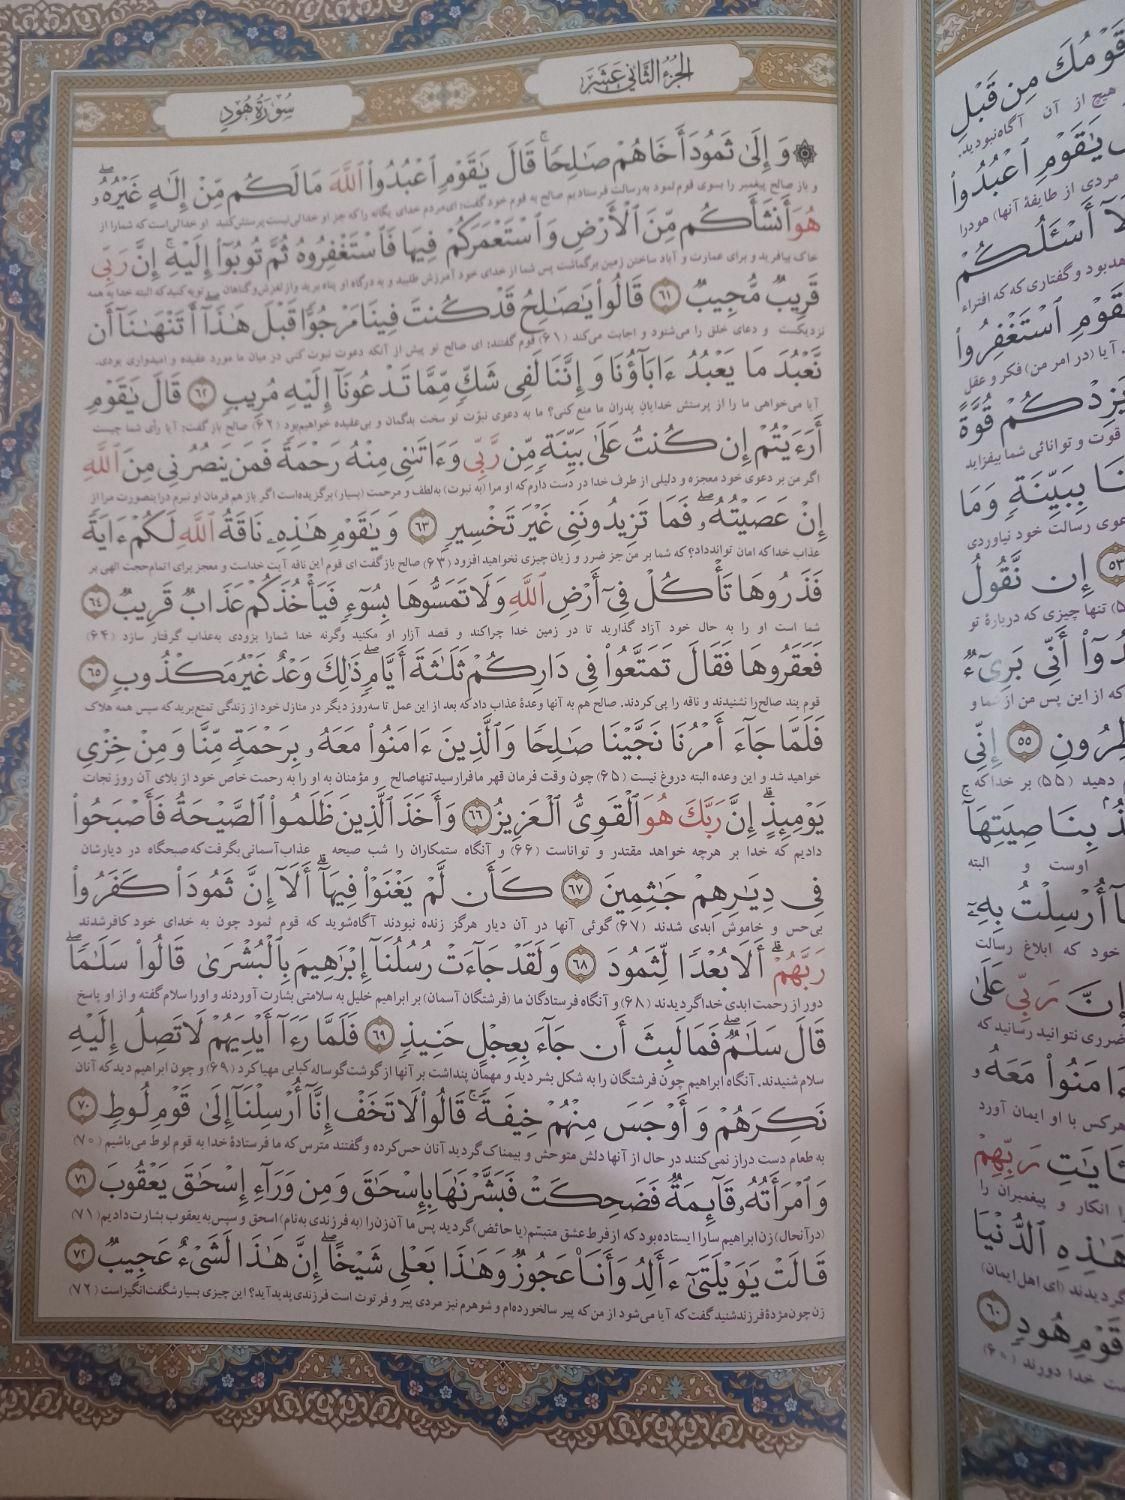 الجزء الثانی عشر
سورة هود
وَإِلَىٰ ثَمُودَ أَخَاهُمْ صَٰلِحًا ۚ قَالَ يَٰقَوْمِ ٱعْبُدُوا۟ ٱللَّهَ مَا لَكُم مِّنْ إِلَٰهٍ غَيْرُهُۥ ۖ
و باز صالح پیغمبر را بسوی قوم ثمود به‌رسالت فرستادیم صالح به قوم خود گفت: ای‌مردم خدای یگانه را که جز او خدائی‌نیست پرستش‌کنید او خدائی‌است که شمارا از
هُوَ أَنشَأَكُم مِّنَ ٱلْأَرْضِ وَٱسْتَعْمَرَكُمْ فِيهَا فَٱسْتَغْفِرُوهُ ثُمَّ تُوبُوٓا۟ إِلَيْهِ ۚ إِنَّ رَبِّى
خاک بیافرید و برای عمارت و آباد ساختن زمین برگماشت پس شما از خدای خود آمرزش طلبید و به درگاه او پناه برید و از لغزش‌و‌گناهان توبه کنید که البته خدا به همه
قَرِيبٌ مُّجِيبٌ ٦١ قَالُوا۟ يَٰصَٰلِحُ قَدْ كُنتَ فِينَا مَرْجُوًّا قَبْلَ هَٰذَآ ۖ أَتَنْهَىٰنَآ أَن
نزدیکست و دعای خلق را می‌شنود و اجابت می‌کند (۶۱) قوم گفتند: ای صالح تو پیش از آنکه دعوت نبوت کنی در میان ما مورد عقیده و امیدواری بودی.
نَّعْبُدَ مَا يَعْبُدُ ءَابَآؤُنَا وَإِنَّنَا لَفِى شَكٍّ مِّمَّا تَدْعُونَآ إِلَيْهِ مُرِيبٍ ٦٢ قَالَ يَٰقَوْمِ
آیا می‌خواهی ما را از پرستش خدایان پدران ما منع کنی؟ ما به دعوی نبوّت تو سخت بدگمان و بی‌عقیده خواهیم‌بود (۶۲) صالح باز گفت: آیا رأی شما چیست
أَرَءَيْتُمْ إِن كُنتُ عَلَىٰ بَيِّنَةٍ مِّن رَّبِّى وَءَاتَىٰنِى مِنْهُ رَحْمَةً فَمَن يَنصُرُنِى مِنَ ٱللَّهِ
اگر من بر دعوی خود معجزه و دلیلی از طرف خدا در دست دارم که او مرا (به نبوت) به‌لطف و مرحمت (بسیار) برگزیده‌است اگر باز هم فرمان او نبرم دراینصورت مرا از
إِنْ عَصَيْتُهُۥ ۖ فَمَا تَزِيدُونَنِى غَيْرَ تَخْسِيرٍ ٦٣ وَيَٰقَوْمِ هَٰذِهِۦ نَاقَةُ ٱللَّهِ لَكُمْ ءَايَةً
عذاب خدا که امان تواندداد؟ که شما بر من جز ضرر و زیان چیزی نخواهید افزود (۶۳) صالح باز گفت ای قوم این ناقه آیت خداست و معجز برای اتمام‌حجت الهی بر
فَذَرُوهَا تَأْكُلْ فِىٓ أَرْضِ ٱللَّهِ وَلَا تَمَسُّوهَا بِسُوٓءٍ فَيَأْخُذَكُمْ عَذَابٌ قَرِيبٌ ٦٤
شما است او را به حال خود آزاد گذارید تا در زمین خدا چراکند و قصد آزار او مکنید وگرنه خدا شمارا بزودی به‌عذاب گرفتار سازد (۶۴)
فَعَقَرُوهَا فَقَالَ تَمَتَّعُوا۟ فِى دَارِكُمْ ثَلَٰثَةَ أَيَّامٍ ۖ ذَٰلِكَ وَعْدٌ غَيْرُ مَكْذُوبٍ ٦٥
قوم پند صالح‌را نشنیدند و ناقه را پی‌کردند. صالح هم به آنها وعدهٔ عذاب داد که بعد از این عمل تا سه‌روز دیگر در منازل خود از زندگی تمتع‌برید که سپس همه هلاک
فَلَمَّا جَآءَ أَمْرُنَا نَجَّيْنَا صَٰلِحًا وَٱلَّذِينَ ءَامَنُوا۟ مَعَهُۥ بِرَحْمَةٍ مِّنَّا وَمِنْ خِزْىِ
خواهید شد و این وعده البته دروغ نیست (۶۵) چون وقت فرمان قهر ما فرارسید تنها صالح و مؤمنان به او را به رحمت خاص خود از بلای آن روز نجات
يَوْمِئِذٍ ۗ إِنَّ رَبَّكَ هُوَ ٱلْقَوِىُّ ٱلْعَزِيزُ ٦٦ وَأَخَذَ ٱلَّذِينَ ظَلَمُوا۟ ٱلصَّيْحَةُ فَأَصْبَحُوا۟
دادیم که خدا بر هرچه خواهد مقتدر و تواناست (۶۶) و آنگاه ستمکاران را شب صیحه عذاب آسمانی بگرفت که صبحگاه در دیارشان
فِى دِيَٰرِهِمْ جَٰثِمِينَ ٦٧ كَأَن لَّمْ يَغْنَوْا۟ فِيهَآ ۗ أَلَآ إِنَّ ثَمُودَا۟ كَفَرُوا۟
بی‌حس و خاموش ابدی شدند (۶۷) گوئی آنها در آن دیار هرگز زنده نبودند آگاه‌شوید که قوم ثمود چون به خدای خود کافرشدند
رَبَّهُمْ ۗ أَلَا بُعْدًا لِّثَمُودَ ٦٨ وَلَقَدْ جَآءَتْ رُسُلُنَآ إِبْرَٰهِيمَ بِٱلْبُشْرَىٰ قَالُوا۟ سَلَٰمًا ۖ
دور از رحمت ابدی خدا گردیدند (۶۸) و آنگاه فرستادگان ما (فرشتگان آسمان) بر ابراهیم خلیل به سلامتی بشارت آوردند و اورا سلام گفته و از او پاسخ
قَالَ سَلَٰمٌ ۖ فَمَا لَبِثَ أَن جَآءَ بِعِجْلٍ حَنِيذٍ ٦٩ فَلَمَّا رَءَآ أَيْدِيَهُمْ لَا تَصِلُ إِلَيْهِ
سلام شنیدند. آنگاه ابراهیم چون فرشتگان را به شکل بشر دید و مهمان پنداشت بر آنها از گوشت گوساله کبابی مهیا کرد (۶۹) و چون ابراهیم دید که آنان
نَكِرَهُمْ وَأَوْجَسَ مِنْهُمْ خِيفَةً ۚ قَالُوا۟ لَا تَخَفْ إِنَّآ أُرْسِلْنَآ إِلَىٰ قَوْمِ لُوطٍ ٧٠
به طعام دست دراز نمی‌کنند در حال از آنها دلش متوحش و بیمناک گردید آنان حس‌کرده و گفتند مترس که ما فرستادهٔ خدا به قوم لوط می‌باشیم (۷۰)
وَٱمْرَأَتُهُۥ قَآئِمَةٌ فَضَحِكَتْ فَبَشَّرْنَٰهَا بِإِسْحَٰقَ وَمِن وَرَآءِ إِسْحَٰقَ يَعْقُوبَ ٧١
(درآنحال) زن ابراهیم سارا ایستاده بود که از فرط عشق متبسّم(یا حائض) گردید پس ما آن‌زن‌را (به فرزندی به‌نام) اسحق و سپس به یعقوب بشارت دادیم (۷۱)
قَالَتْ يَٰوَيْلَتَىٰٓ ءَأَلِدُ وَأَنَا۠ عَجُوزٌ وَهَٰذَا بَعْلِى شَيْخًا ۖ إِنَّ هَٰذَا لَشَىْءٌ عَجِيبٌ ٧٢
زن چون مژدهٔ فرزند شنید گفت که آیا می‌شود از من که پیر سالخورده‌ام و شوهرم نیز مردی پیر و فرتوت است فرزندی پدید آید؟ این چیزی بسیار شگفت‌انگیز است (۷۲)
قَوْمُكَ مِن قَبْلِ
هیچ از آن آگاه نبودید.
يَٰقَوْمِ ٱعْبُدُوا۟
مردی از طایفهٔ آنها) هودرا
لَآ أَسْـَٔلُكُمْ
هدبود و گفتاری که که افتراء
قَوْمِ ٱسْتَغْفِرُوا۟
آیا (در امر من) فکر و عقل
يَزِدْكُمْ قُوَّةً
قوت و توانائی شما بیفزاید
نَا بِبَيِّنَةٍ وَمَا
عوی رسالت خود نیاوردی
٥٣ إِن نَّقُولُ
تنها چیزی که دربارهٔ تو
دُوٓا۟ أَنِّى بَرِىٓءٌ
که از این پس من از شما و
ظِرُونِ ٥٥ إِنِّى
دهید (۵۵) بر خدا که
ذٌۢ بِنَاصِيَتِهَآ
اوست و البته
آ أُرْسِلْتُ بِهِۦٓ
خود که ابلاغ رسالت
إِنَّ رَبِّى عَلَىٰ
ضرری نتوانید رسانید که
ءَامَنُوا۟ مَعَهُۥ
هرکس با او ایمان آورد
ـَٔايَٰتِ رَبِّهِمْ
را انکار و پیغمبران را
هَٰذِهِ ٱلدُّنْيَا
گردیدند (ای اهل ایمان)
قَوْمِ هُودٍ ٦٠
ت خدا دورند (۶۰)